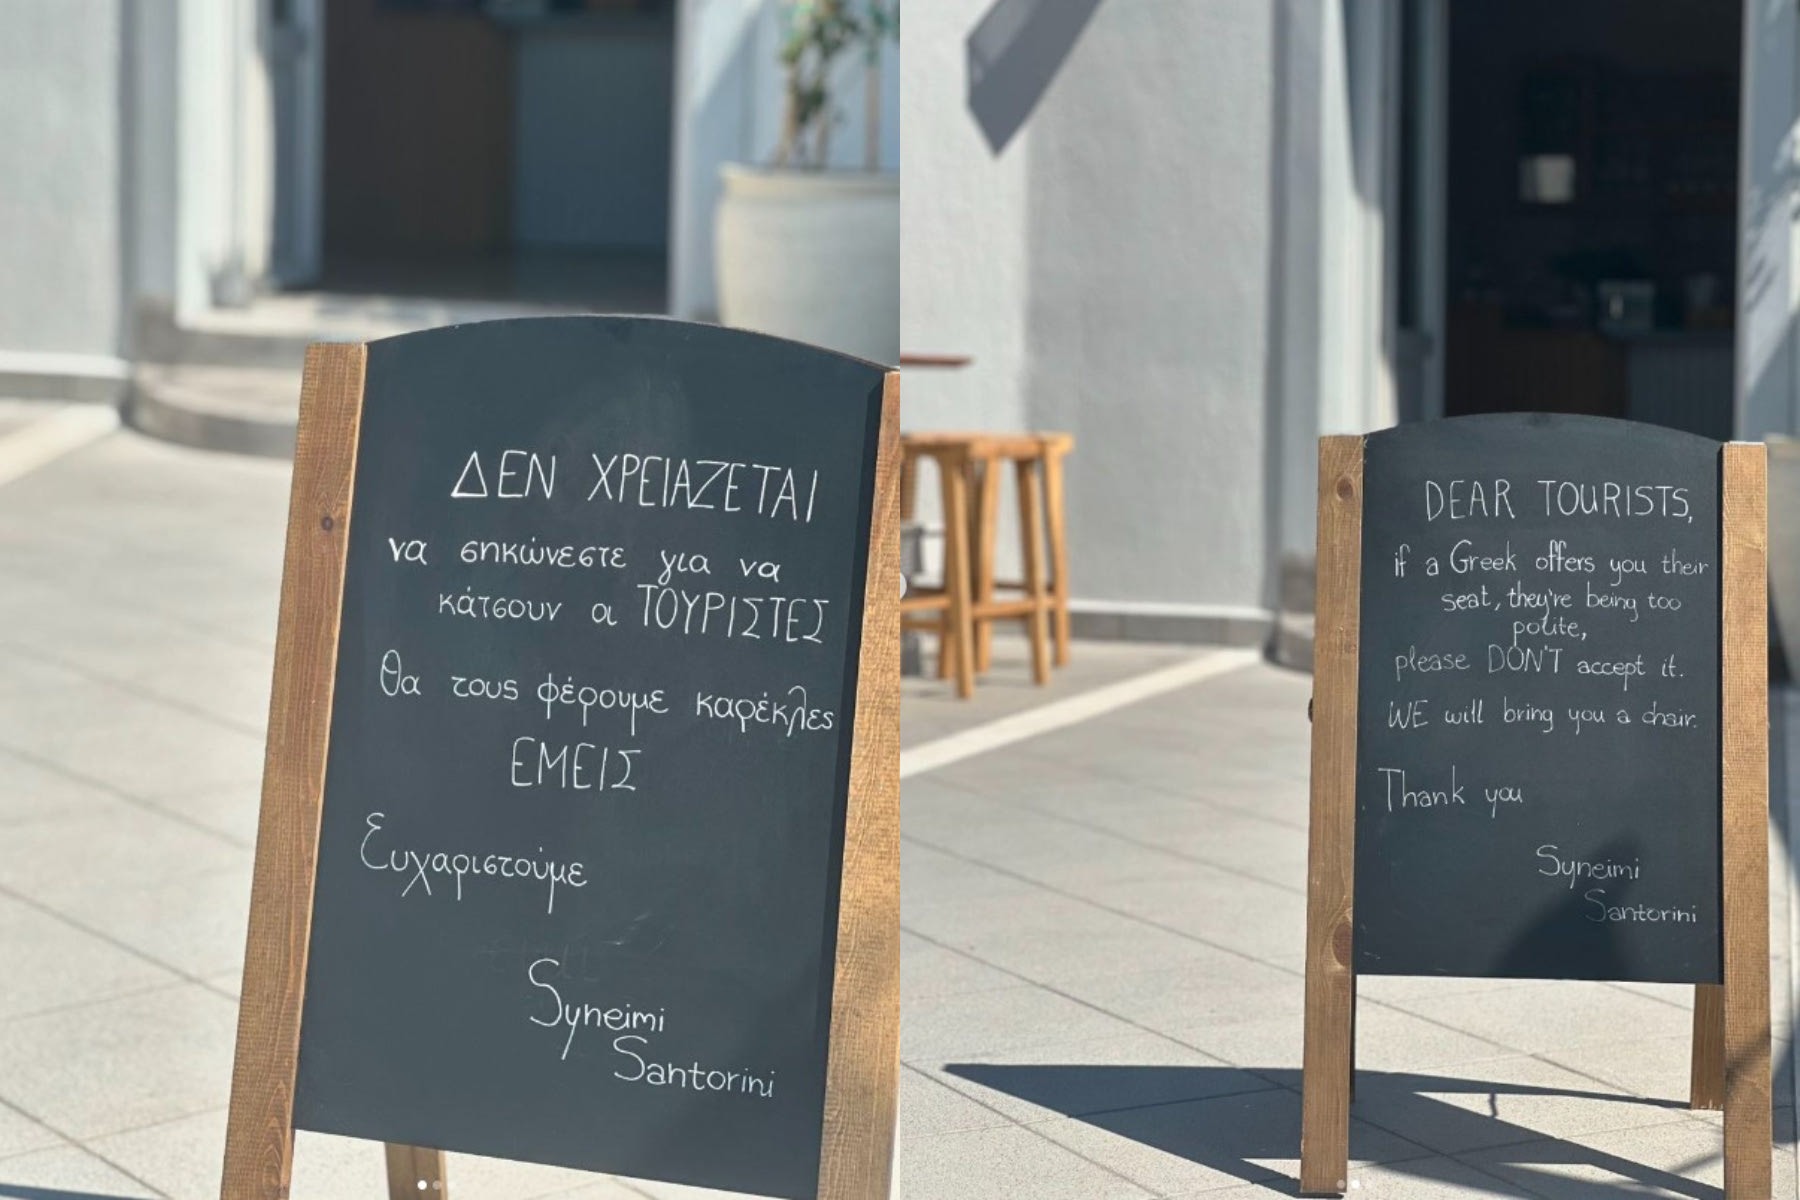 ΔΕΝ ΧΡΕΙΑΖΕΤΑΙ
να σηκώνεστε για να
κάτσουν οι ΤΟΥΡΙΣΤΕΣ
Θα τους φέρουμε καρέκλες
ΕΜΕΙΣ
Ευχαριστούμε
Syneimi
Santorini
DEAR TOURISTS,
if a Greek offers you their
seat, they're being too
polite,
please DON'T accept it.
WE will bring you a chair.
Thank you
Syneimi
Santorini